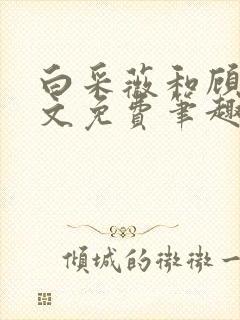 白采薇和顾
文免费笔趣
倾城的微微一